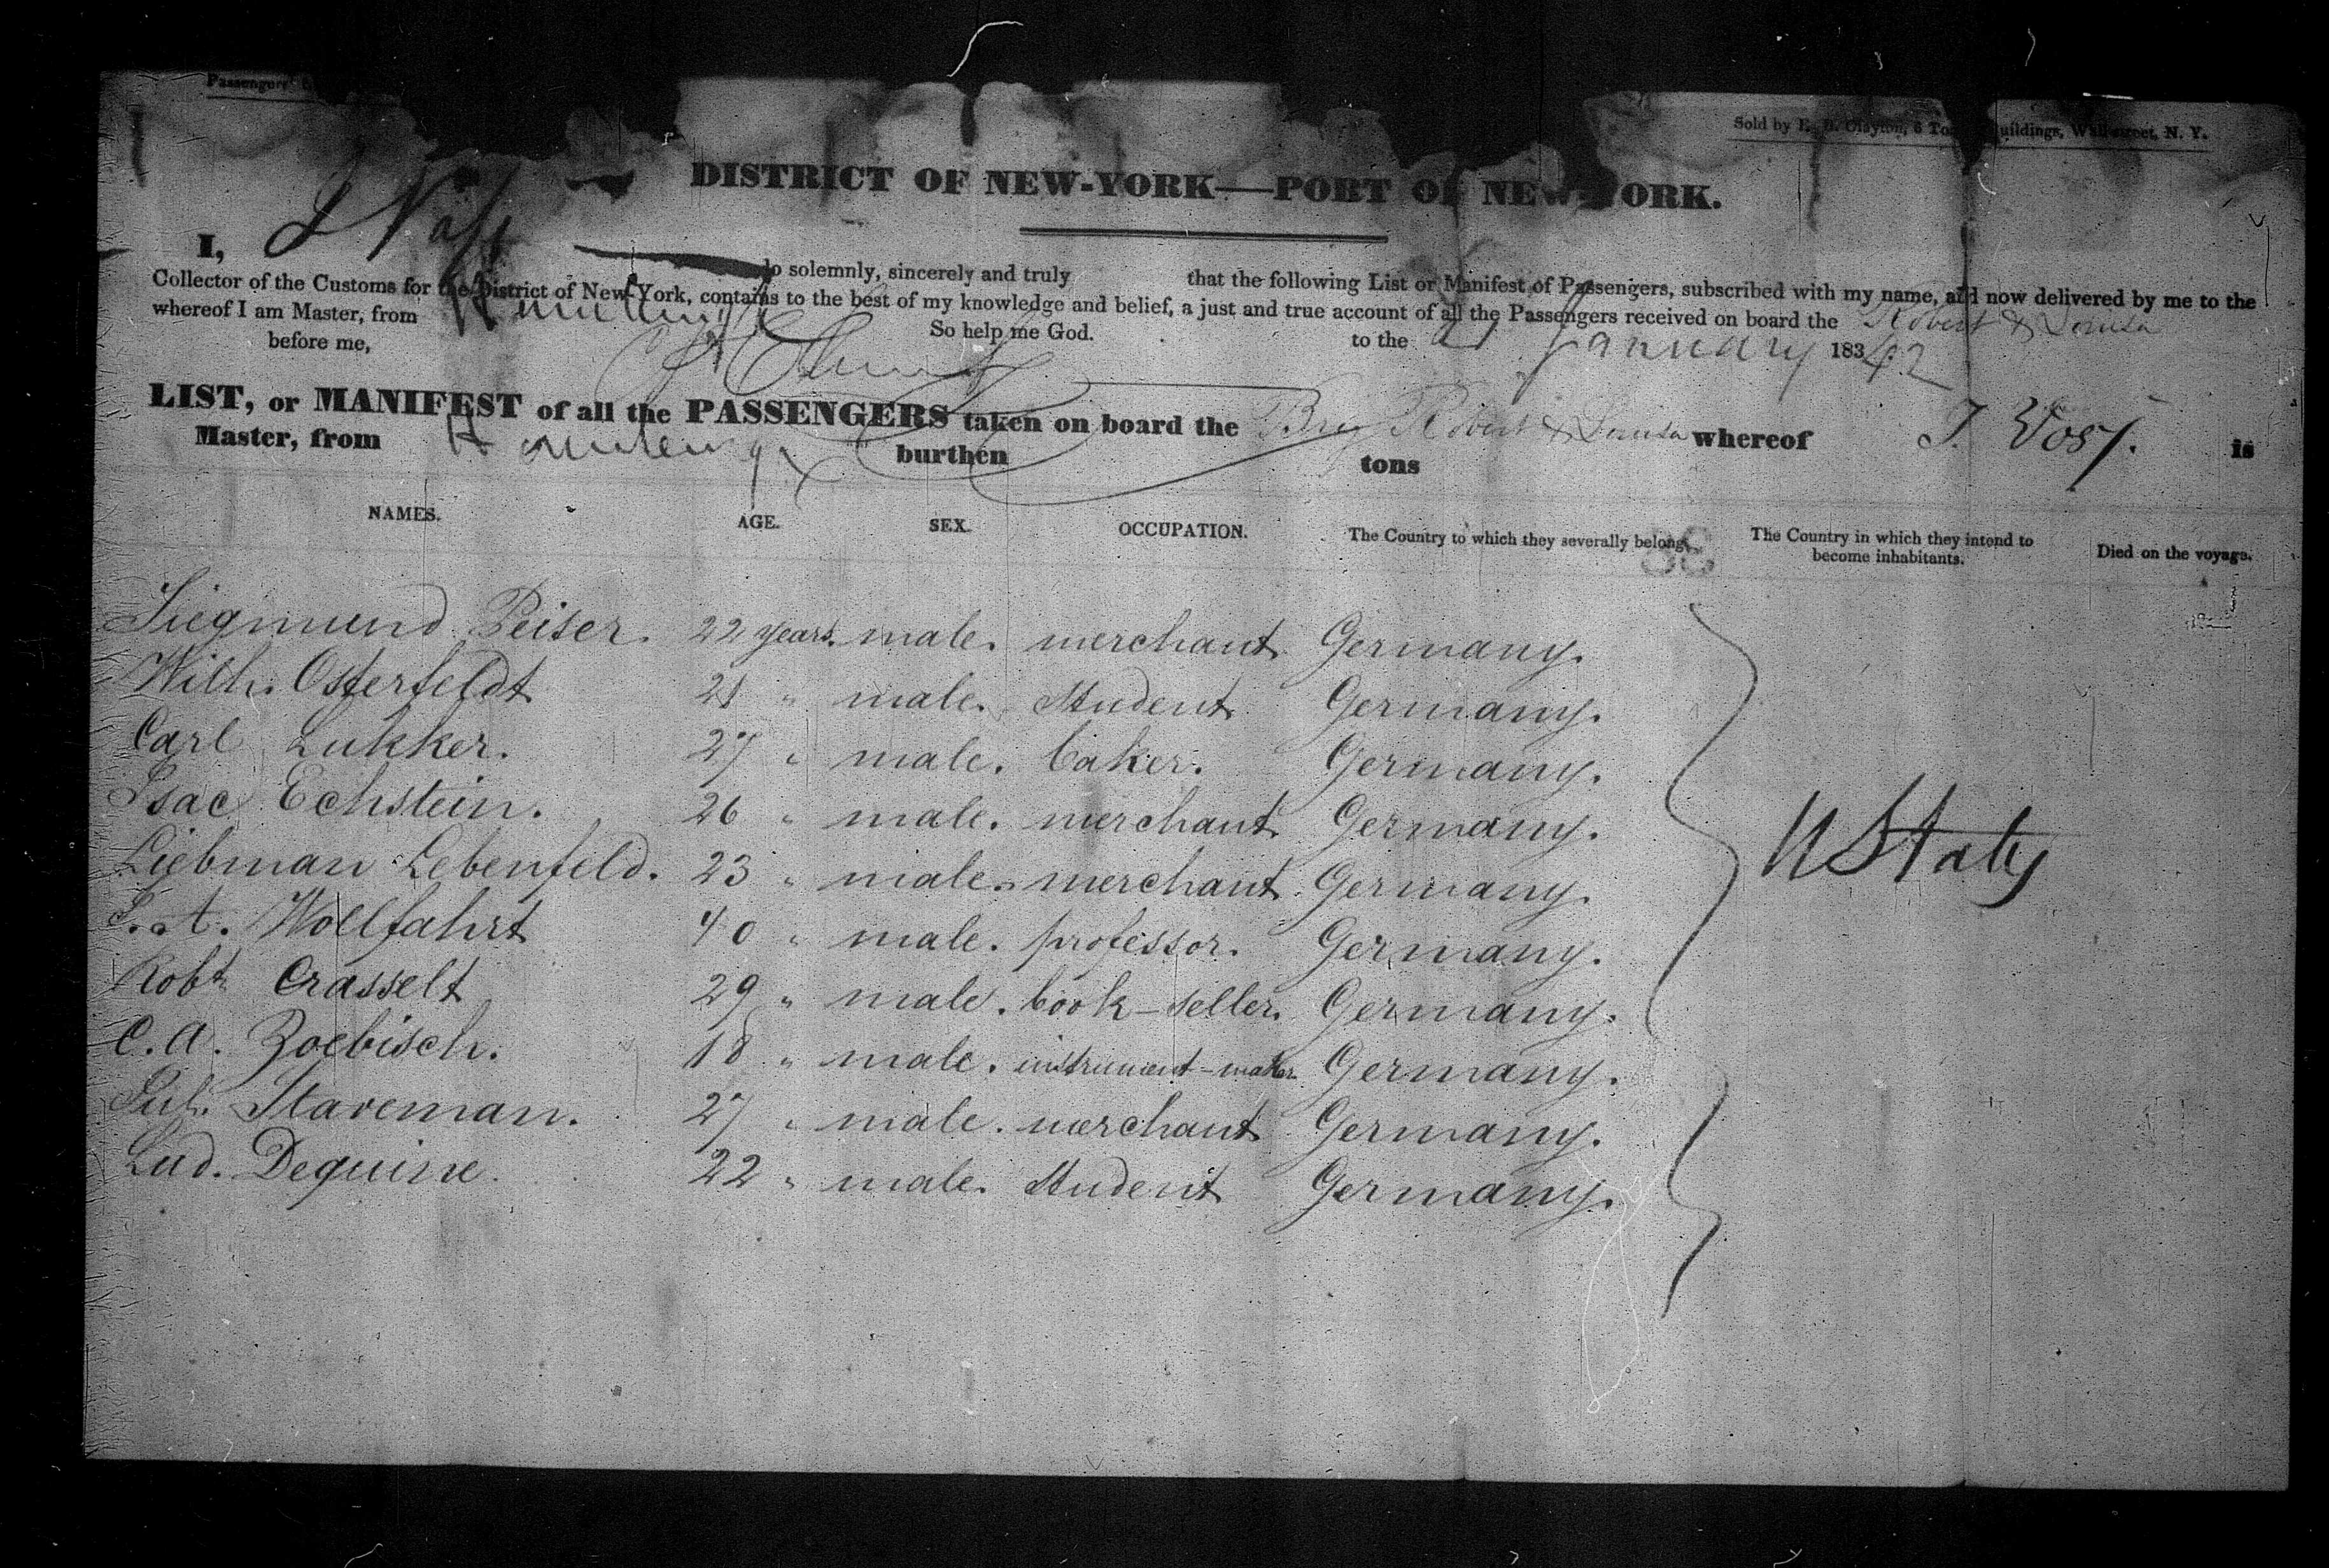 Passengers'
Sold by E. B. Clayton, 6 To uildings, Wall-street, N. Y.
DISTRICT OF NEW-YORK—PORT OF NEW-YORK.
I, J Vost do solemnly, sincerely and truly that the following List or Manifest of Passengers, subscribed with my name, and now delivered by me to the
Collector of the Customs for the District of New-York, contains to the best of my knowledge and belief, a just and true account of all the Passengers received on board the Robert & Louisa
whereof I am Master, from Hamburg So help me God. to the 21 January 18342
before me,
LIST, or MANIFEST of all the PASSENGERS taken on board the Brig Robert & Louisa whereof J. Vost. is
Master, from Hamburg burthen tons
NAMES. AGE. SEX. OCCUPATION. The Country to which they severally belong. The Country in which they intend to become inhabitants. Died on the voyage.
38
Siegmund Peiser. 22 years. male. merchant. Germany.
Wilh. Osterfeldt 21 " male. Student Germany.
Carl Lukker. 27 " male. baker. Germany.
Isac Echstein. 26 " male. merchant. Germany.
Liebman Lebenfeld. 23 " male. merchant. Germany.
S. A. Wollfahrt 40 " male. professor. Germany.
Robt. Crasselt 29 " male. book-seller. Germany.
C. A. Zoebisch. 18 " male. instrument-maker Germany.
Jul. Stareman. 27 " male. merchant Germany.
Lud. Dequine. 22 " male. Student Germany.
U States